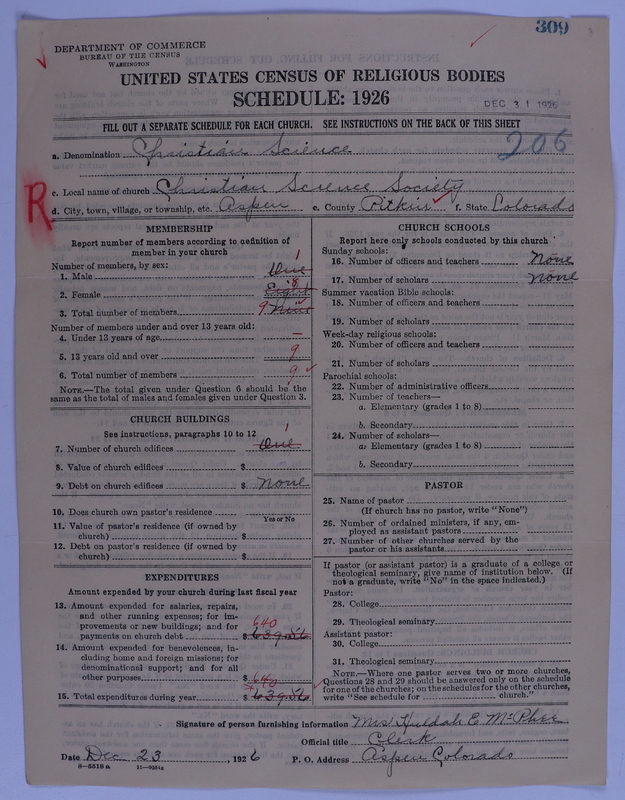 309
DEPARTMENT OF COMMERCE
BUREAU OF THE CENSUS
WASHINGTON
UNITED STATES CENSUS OF RELIGIOUS BODIES
SCHEDULE: 1926
DEC 31 1926
FILL OUT A SEPARATE SCHEDULE FOR EACH CHURCH. SEE INSTRUCTIONS ON THE BACK OF THIS SHEET
206
a. Denomination Christian Science
R
c. Local name of church Christian Science Society
d. City, town, village, or township, etc. Aspen e. County Pitkin f. State Colorado
MEMBERSHIP
Report number of members according to definition of
member in your church
Number of members, by sex:
1. Male One 1
2. Female Eight 8
3. Total number of members 9 Nine
Number of members under and over 13 years old:
4. Under 13 years of age —
5. 13 years old and over 9
6. Total number of members 9
NOTE.—The total given under Question 6 should be
same as the total of males and females given under Question 3.
CHURCH BUILDINGS
See instructions, paragraphs 10 to 12
7. Number of church edifices One 1
8. Value of church edifices $
9. Debt on church edifices $ None
10. Does church own pastor's residence
Yes or No
11. Value of pastor's residence (if owned by
church) $
12. Debt on pastor's residence (if owned by
church) $
EXPENDITURES
Amount expended by your church during last fiscal year
13. Amount expended for salaries, repairs,
and other running expenses; for im-
provements or new buildings; and for
payments on church debt $ 639.56 640
14. Amount expended for benevolences, in-
cluding home and foreign missions; for
denominational support; and for all
other purposes $ 640
15. Total expenditures during year $ 639.56
CHURCH SCHOOLS
Report here only schools conducted by this church
Sunday schools:
16. Number of officers and teachers None
17. Number of scholars None
Summer vacation Bible schools:
18. Number of officers and teachers
19. Number of scholars
Week-day religious schools:
20. Number of officers and teachers
21. Number of scholars
Parochial schools:
22. Number of administrative officers
23. Number of teachers—
a. Elementary (grades 1 to 8)
b. Secondary
24. Number of scholars—
a. Elementary (grades 1 to 8)
b. Secondary
PASTOR
25. Name of pastor
(If church has no pastor, write "None")
26. Number of ordained ministers, if any, em-
ployed as assistant pastors
27. Number of other churches served by the
pastor or his assistants
If pastor (or assistant pastor) is a graduate of a college or
theological seminary, give name of institution below. (If
not a graduate, write "No" in the space indicated.)
Pastor:
28. College
29. Theological seminary
Assistant pastor:
30. College
31. Theological seminary
NOTE.—Where one pastor serves two or more churches,
Questions 28 and 29 should be answered only on the schedule
for one of the churches; on the schedules for the other churches,
write "See schedule for church."
Signature of person furnishing information Mrs Huldah E McPhee
Official title Clerk
Date Dec 23, 1926 P. O. Address Aspen Colorado